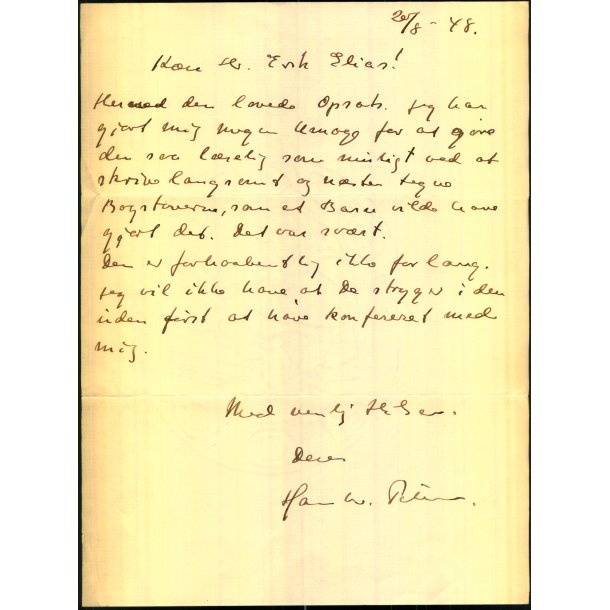 20/8 - 48.
Kære Hr. Erik Elias!
Hermed den lovede Opsats. Jeg har
gjort mig nogen Umage for at gøre
den saa læselig som muligt ved at
skrive langsomt og næsten tegne
Bogstaverne, som et Barn vilde have
gjort det. Det var svært.
Den er forhaabentlig ikke for lang.
Jeg vil ikke have at De stryger i den
uden først at have konfereret med
mig.
Med venlig Hilsen.
Deres